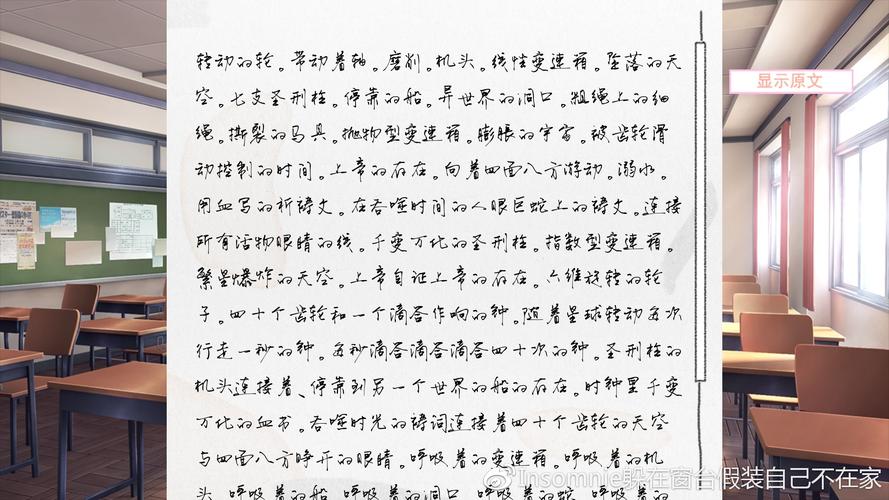 转动的轮。带动着轴。磨削。机头。线性变速箱。坠落的天
空。七支圣刑柱。停靠的船。异世界的洞口。粗绳上的细
绳。撕裂的马具。抛物型变速箱。膨胀的宇宙。被齿轮滑
动控制的时间。上帝的存在。向着四面八方游动。溺水。
用血写的祈祷文。在吞噬时间的人眼巨蛇上的祷文。连接
所有活物眼睛的线。千变万化的圣刑柱。指数型变速箱。
繁星爆炸的天空。上帝自证上帝的存在。六维旋转的轮
子。四十个齿轮和一个滴答作响的钟。随着星球转动每次
行走一秒的钟。每秒滴答滴答滴答四十次的钟。圣刑柱的
机头连接着、停靠到另一个世界的船的存在。时钟里千变
万化的血书。吞噬时光的祷词连接着四十个齿轮的天空
与四面八方睁开的眼睛。呼吸着的变速箱。呼吸着的机
头。呼吸着的船。呼吸着的洞口。呼吸着的蛇。呼吸着的
显示原文
Insomnie躲在窗台假装自己不在家